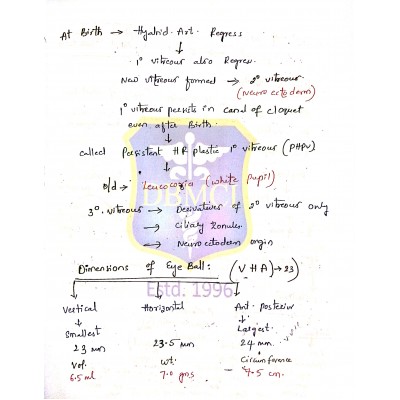 At Birth → Hyaloid. Art. Regress
↓
1° vitreous also Regress.
New vitreous formed → 2° vitreous
(Neuroectoderm)
1° vitreous persists in canal of cloquet
even after Birth.
↓
called Persistent HP plastic 1° vitreous (PHPV)
↓
o/d → Leucocoria (white pupil)
3° vitreous → Derivatives of 2° vitreous only
→ Ciliary Zonules
→ Neuroectoderm orgin
DBMCI
Dimensions of Eye Ball: (V H A) → 23)
Estd. 1996
Vertical Horizontal Ant. posterior
↓ ↓
Smallest Largest
23 mm 23.5 mm 24 mm
Vol. wt. Circumference
6.5 ml 7.0 gms 7.5 cm.